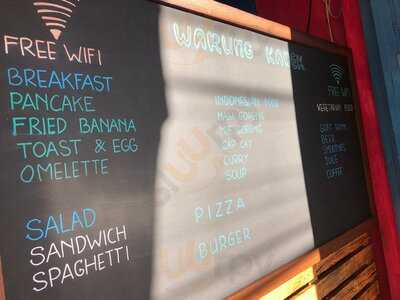 FREE WIFI
BREAKFAST
PANCAKE
FRIED BANANA
TOAST & EGG
OMELETTE
SALAD
SANDWICH
SPAGHETTI
WARUNG
INDONESIAN FOOD
NASI GORENG
MIE GORENG
CAP CAY
CURRY
SOUP
PIZZA
BURGER
FREE WIFI
VEGETARIAN FOOD
SOFT DRINK
BEER
SMOOTHIES
JUICE
COFFEE